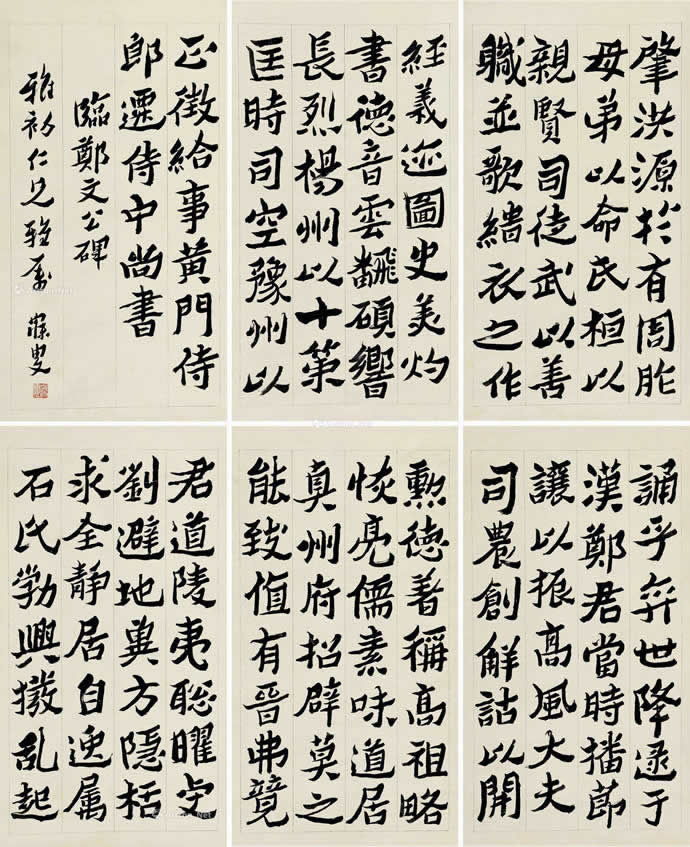 肇洪源於有周胙
母弟以命氏桓以
親賢司徒武以善
職並歌緇衣之作
誦乎弈世降逮于
漢鄭君當時播節
讓以振高風大夫
司農創解詁以開
經義迹圖史美灼
書德音雲飜碩響
長烈楊州以十策
匡時司空豫州以
勲德著稱高祖略
恢亮儒素味道居
真州府招辟莫之
能致值有晉弗競
君道陵夷聡曜虔
劉避地冀方隱栝
求全靜居自逸属
石氏勃興撥亂起
正徵給事黃門侍
郎遷侍中尚書
臨鄭文公碑
雅初仁兄雅屬 寐叟